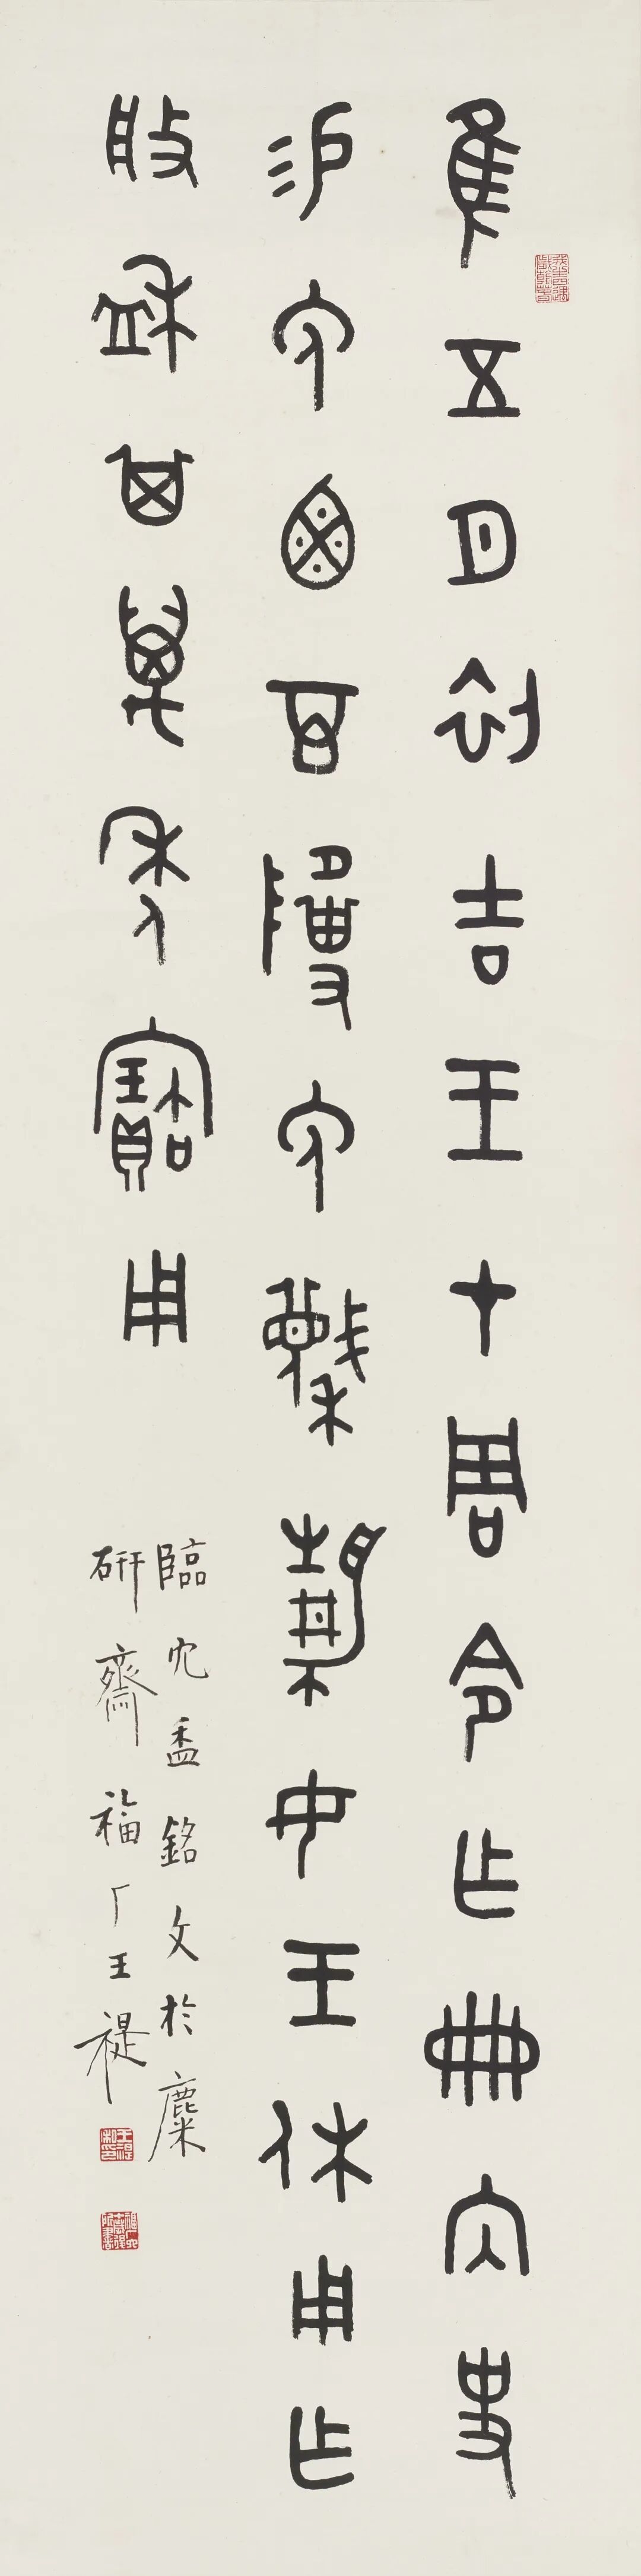 隹五月初吉王才周令乍冊內史
易免鹵百免蔑靜女王休用乍
般盉其萬年寶用
臨免盉銘文於麋
研齋福厂王禔
王禔私印